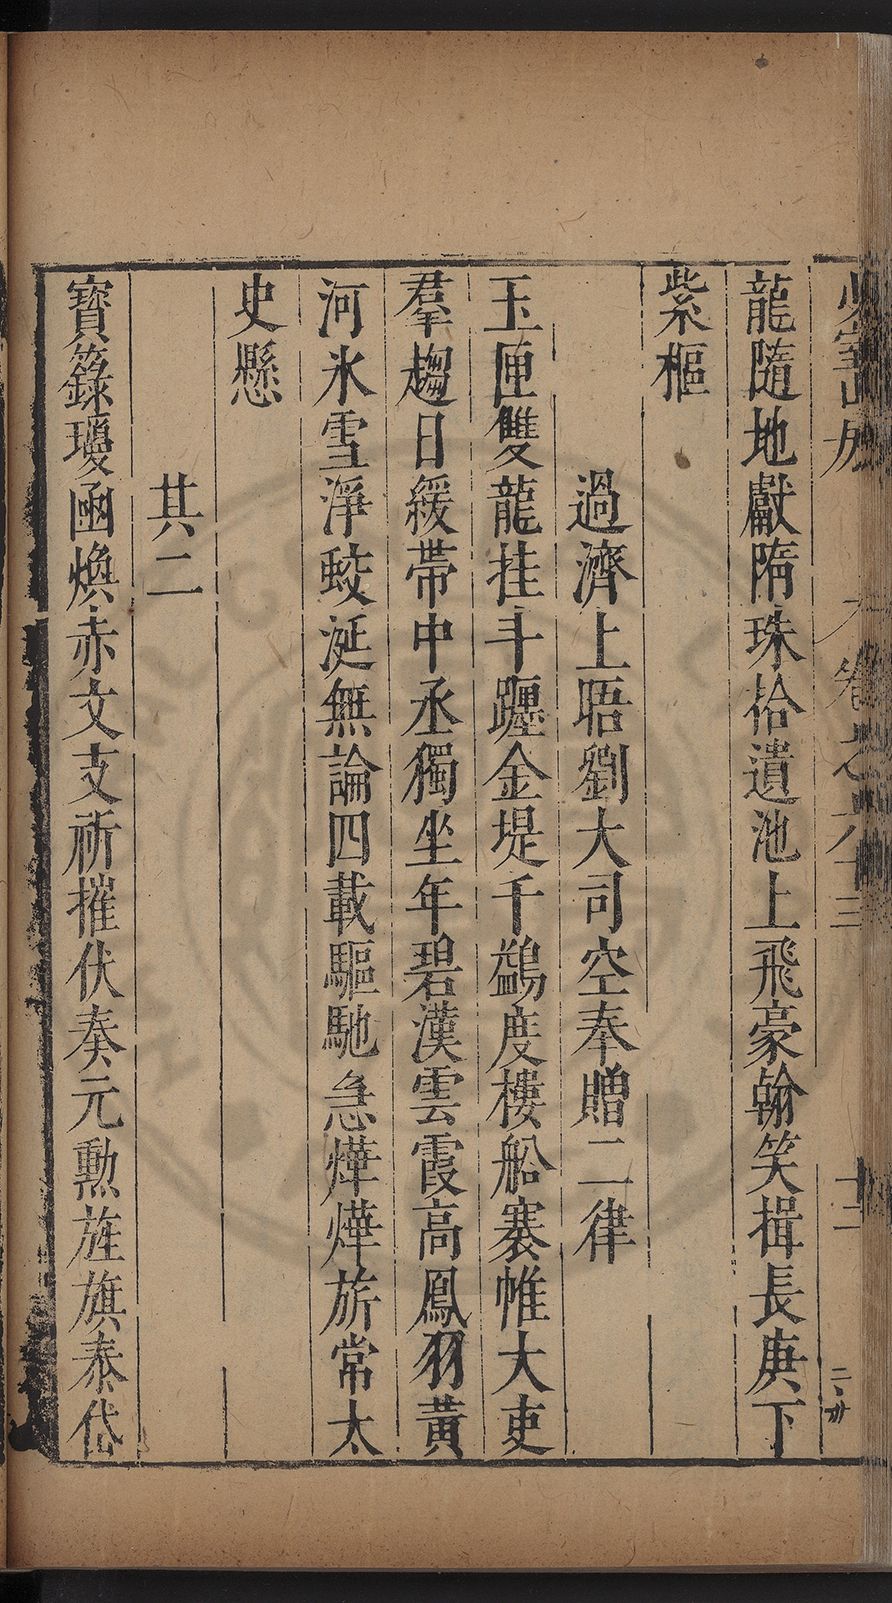 少室山房 卷之六十三 十二
龍隨地獻隋珠拾遺池上飛豪翰笑揖長庚下
紫樞
過濟上晤劉大司空奉贈二律
玉匣雙龍挂斗躔金堤千鷁度樓船褰帷大吏
羣趨日緩帶中丞獨坐年碧漢雲霞高鳳羽黃
河氷雪淨蛟涎無論四載驅馳急燁燁旂常太
史懸
其二
寶籙瓊凾煥赤文支祈摧伏奏元勳旌旗泰岱